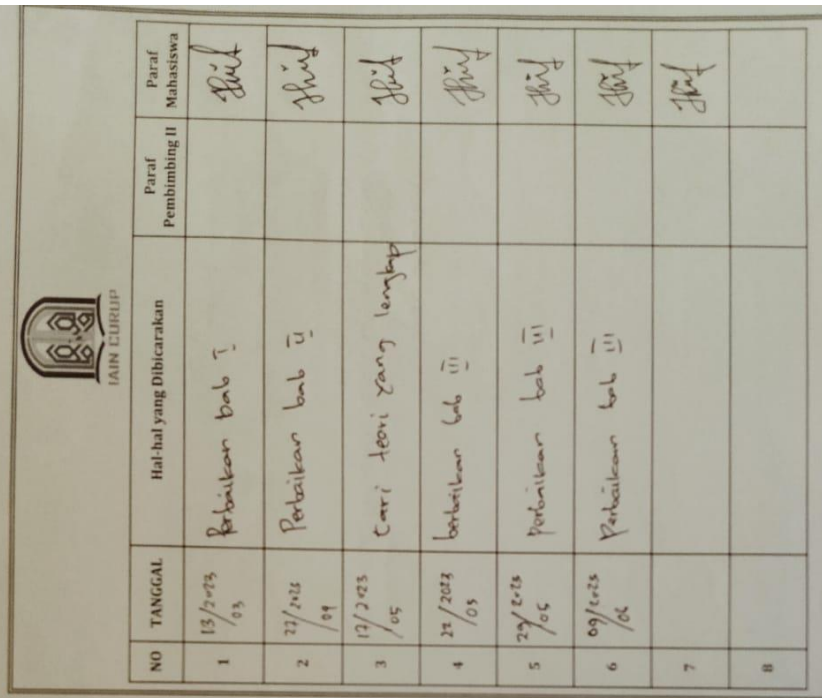 IAIN CURUP
NO TANGGAL Hal-hal yang Dibicarakan Paraf Pembimbing II Paraf Mahasiswa
1 13/2023 03 Perbaikan bab I
2 27/2023 04 Perbaikan bab II
3 17/2023 05 Cari teori yang lengkap
4 22/2023 05 berbaikan bab III
5 29/2023 05 Perbaikan bab III
6 09/2023 06 Perbaikan bab III
7
8